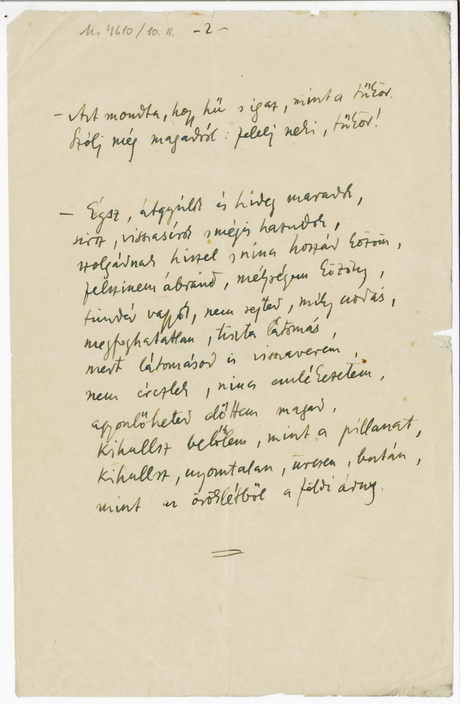 Ms 4610/10. II. -2-
– Azt mondta, hogy hű s igaz, mint a tükör.
Szólj még magadról: felelj neki, tükör!
– Égsz, átgyúlok és hideg maradok,
sírsz, visszasírok s mégis hazudok,
szolgádnak hiszel s nincs hozzád közöm,
felszinem ábránd, mélységem közöny,
tündér vagyok, nem sejted, mily csodás,
megfoghatatlan, tiszta látomás,
mert látomásod is visszaverem,
nem érezlek, nincs emlékezetem,
agyonlőheted előttem magad,
kihullsz belőlem, mint a pillanat,
kihullsz, nyomtalan, üresen, bután,
mint az öröklétből a földi árny.